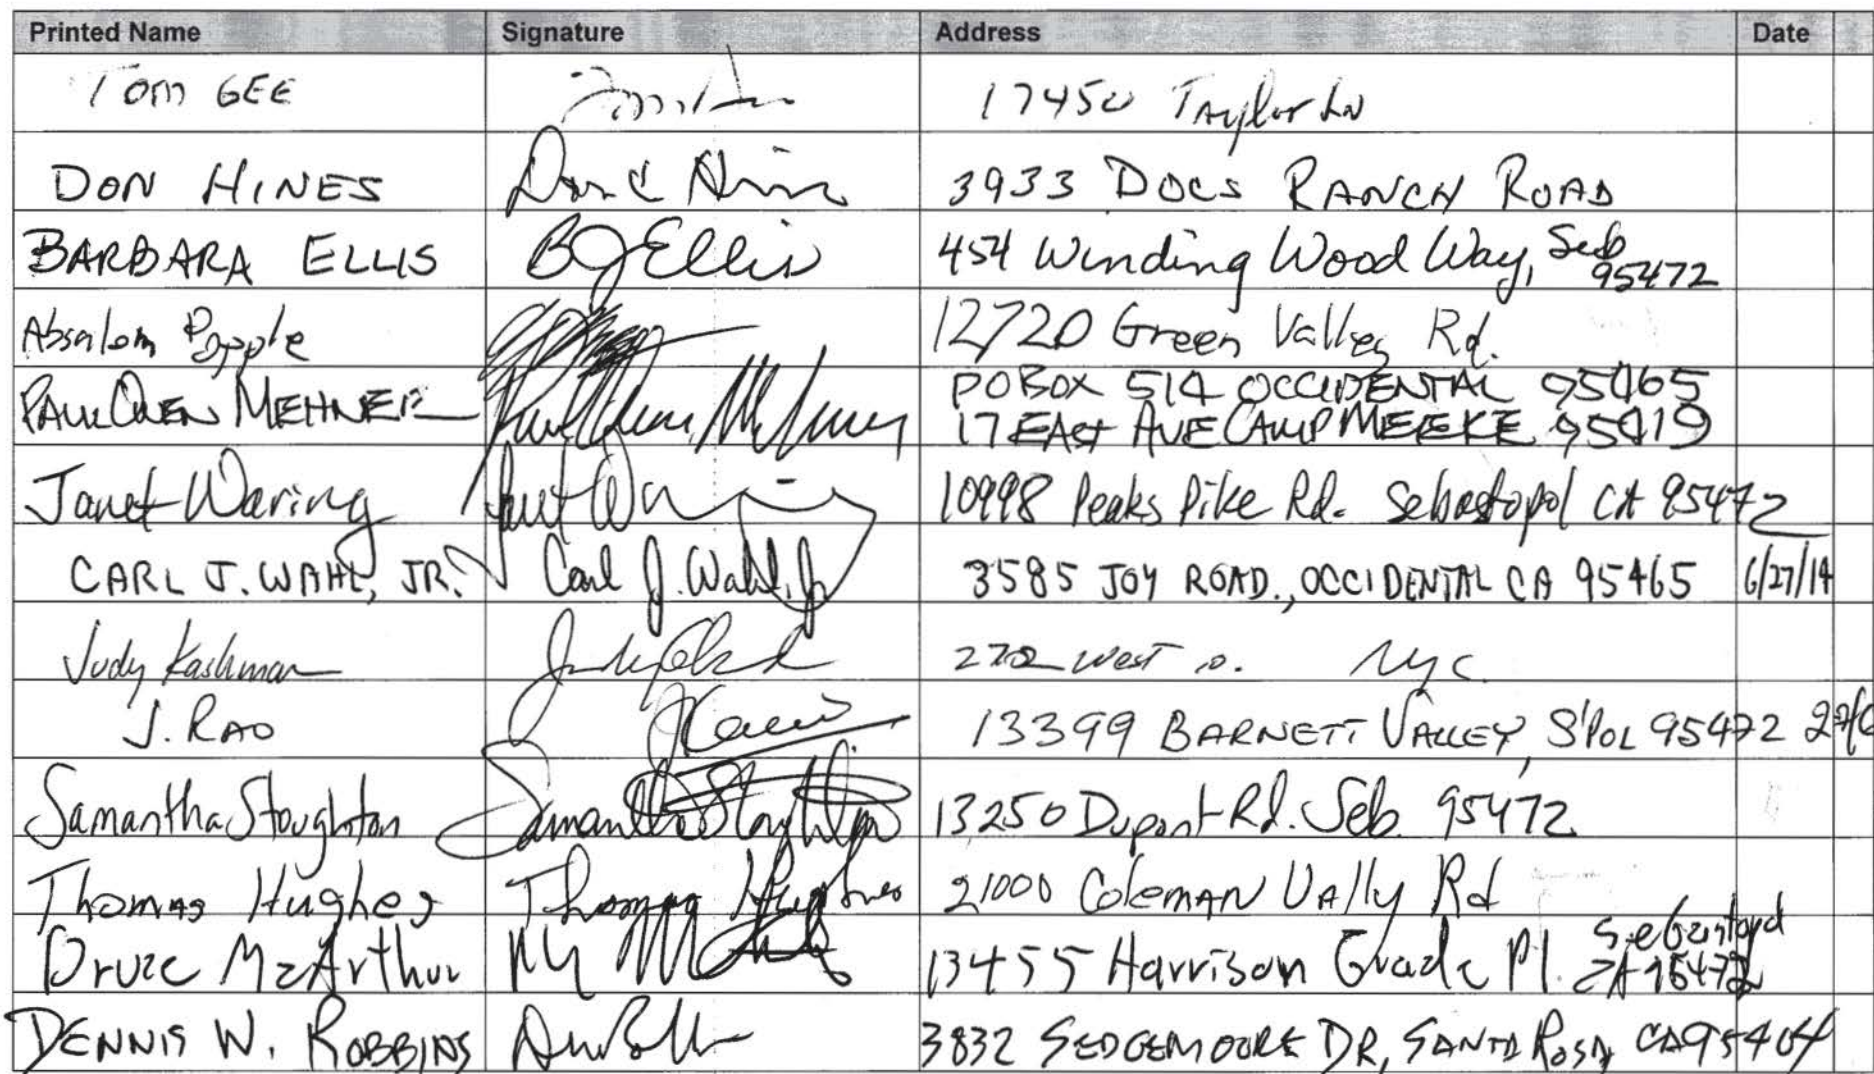 Printed Name Signature Address Date
Tom GEE 17450 Taylor Ln
DON HINES Don C Hines 3933 DOCS RANCH ROAD
BARBARA ELLIS BJ Ellis 454 Winding Wood Way, Seb 95472
Absalom Popple 12720 Green Valley Rd.
PAUL OWEN MEHNER PO BOX 514 OCCIDENTAL 95465
17 EAST AVE CAMP MEEKE 95419
Janet Waring Janet Waring 10998 Peaks Pike Rd. Sebastopol CA 95472
CARL J. WAHL, JR. Carl J. Wahl, Jr 3585 JOY ROAD., OCCIDENTAL CA 95465 6/27/14
Judy Kashman 272 West 10. NYC
J. RAO 13399 BARNETT VALLEY, S'POL 95472 27/6
Samantha Stoughton Samantha Stoughton 13250 Dupont Rd. Seb. 95472
Thomas Hughes Thomas Hughes 21000 Coleman VAlly Rd
Bruce McArthur 13455 Harrison Grade Pl. Sebastopol CA 95472
DENNIS W. ROBBINS 3832 SEDGEMOORE DR, SANTA ROSA, CA 95404